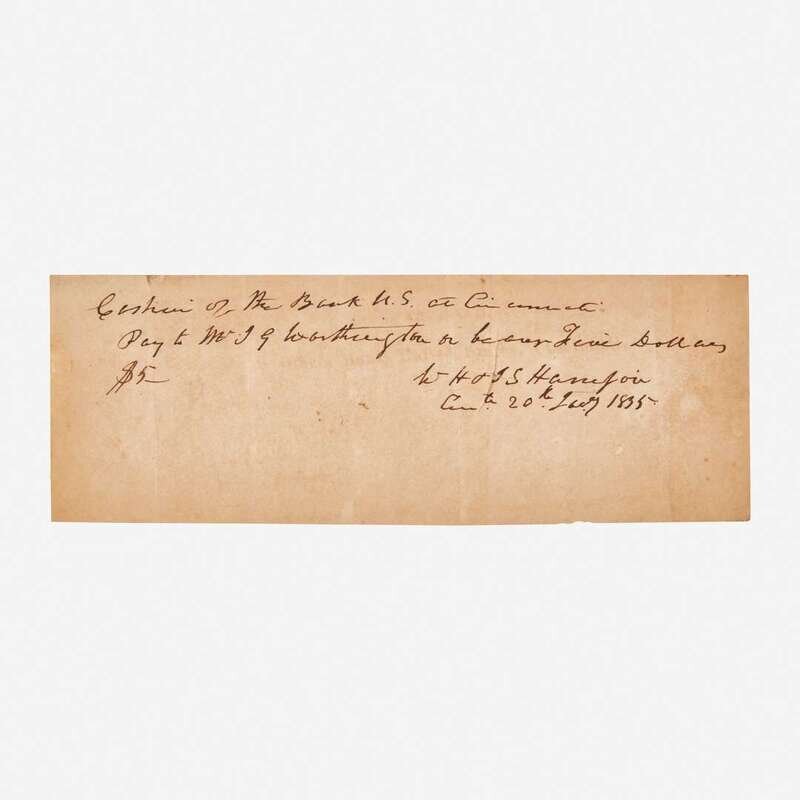 Cashier of the Bank U.S. at Cincinnati
Pay to Mr J G Worthington or bearer Five Dollars
$5– W H & J S Harrison
Cinti 20th Jany 1835.